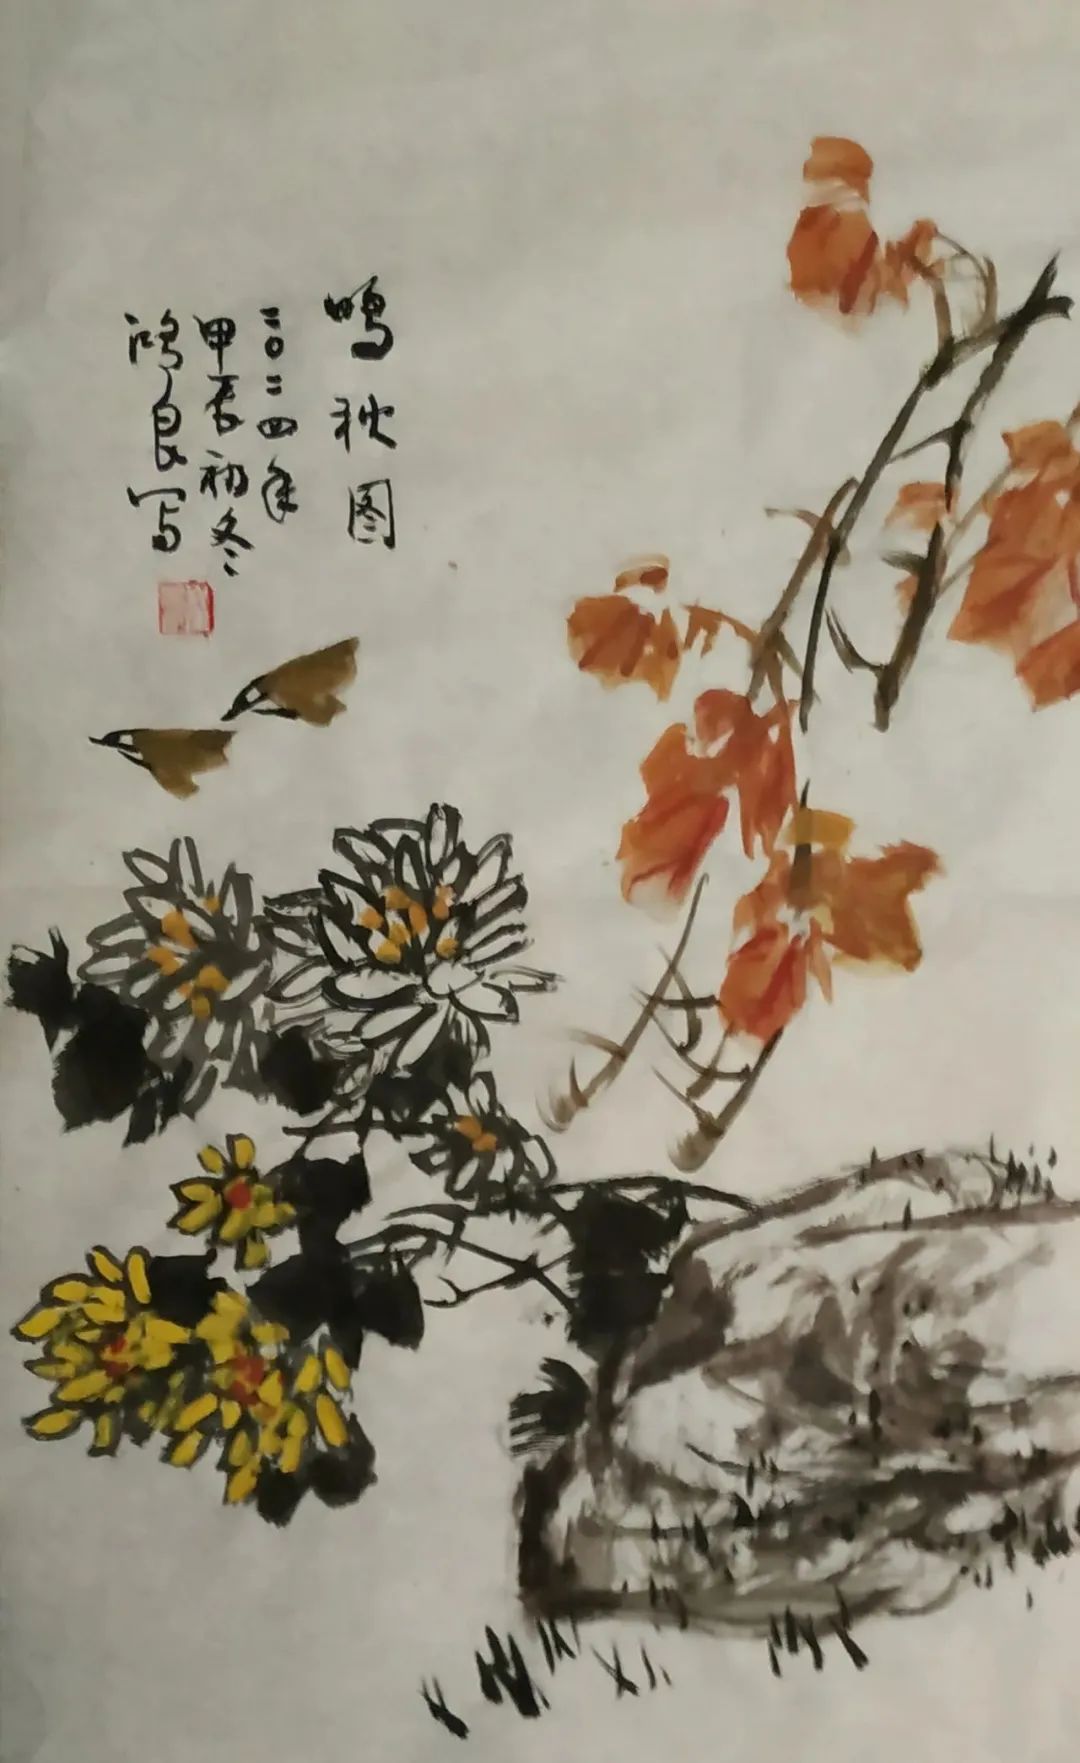 鸣秋图
二〇二四年
甲辰初冬
鸿良写